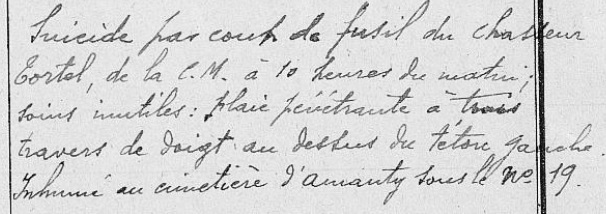 Suicide par coup de fusil du Chasseur
Tortel, de la C.M. à 10 heures du matin;
soins inutiles: plaie pénétrante à trois
travers de doigt au dessus du téton gauche.
Inhumé au cimetière d'Amanty sous le No 19.